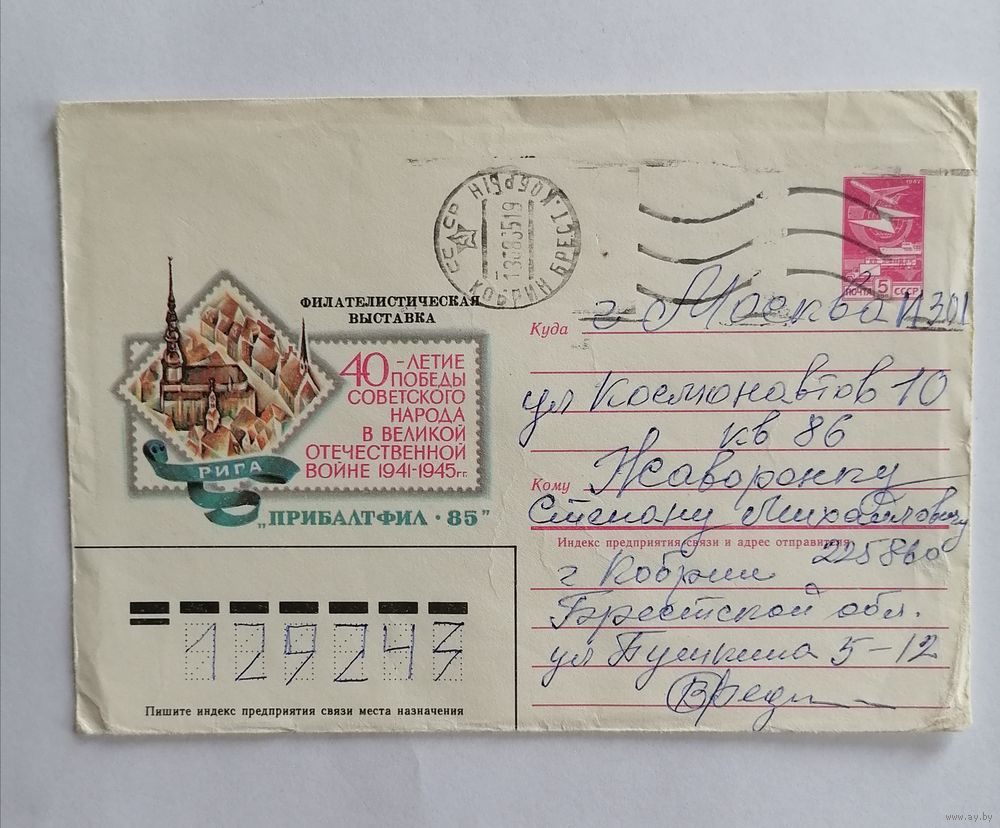 КОБРЫН
СССР
130885 19
КОБРИН БРЕСТ.
1982
ПОЧТА 5 СССР
ФИЛАТЕЛИСТИЧЕСКАЯ
ВЫСТАВКА
40-ЛЕТИЕ
ПОБЕДЫ
СОВЕТСКОГО
НАРОДА
В ВЕЛИКОЙ
ОТЕЧЕСТВЕННОЙ
ВОЙНЕ 1941-1945 гг.
РИГА
„ПРИБАЛТФИЛ · 85"
Куда г Москва И301
ул Космонавтов 10
кв 86
Кому Жаворонку
Степану Михайловичу
Индекс предприятия связи и адрес отправителя
225860
г Кобрин
Брестской обл.
ул Пушкина 5-12
129243
Пишите индекс предприятия связи места назначения
www.ay.by